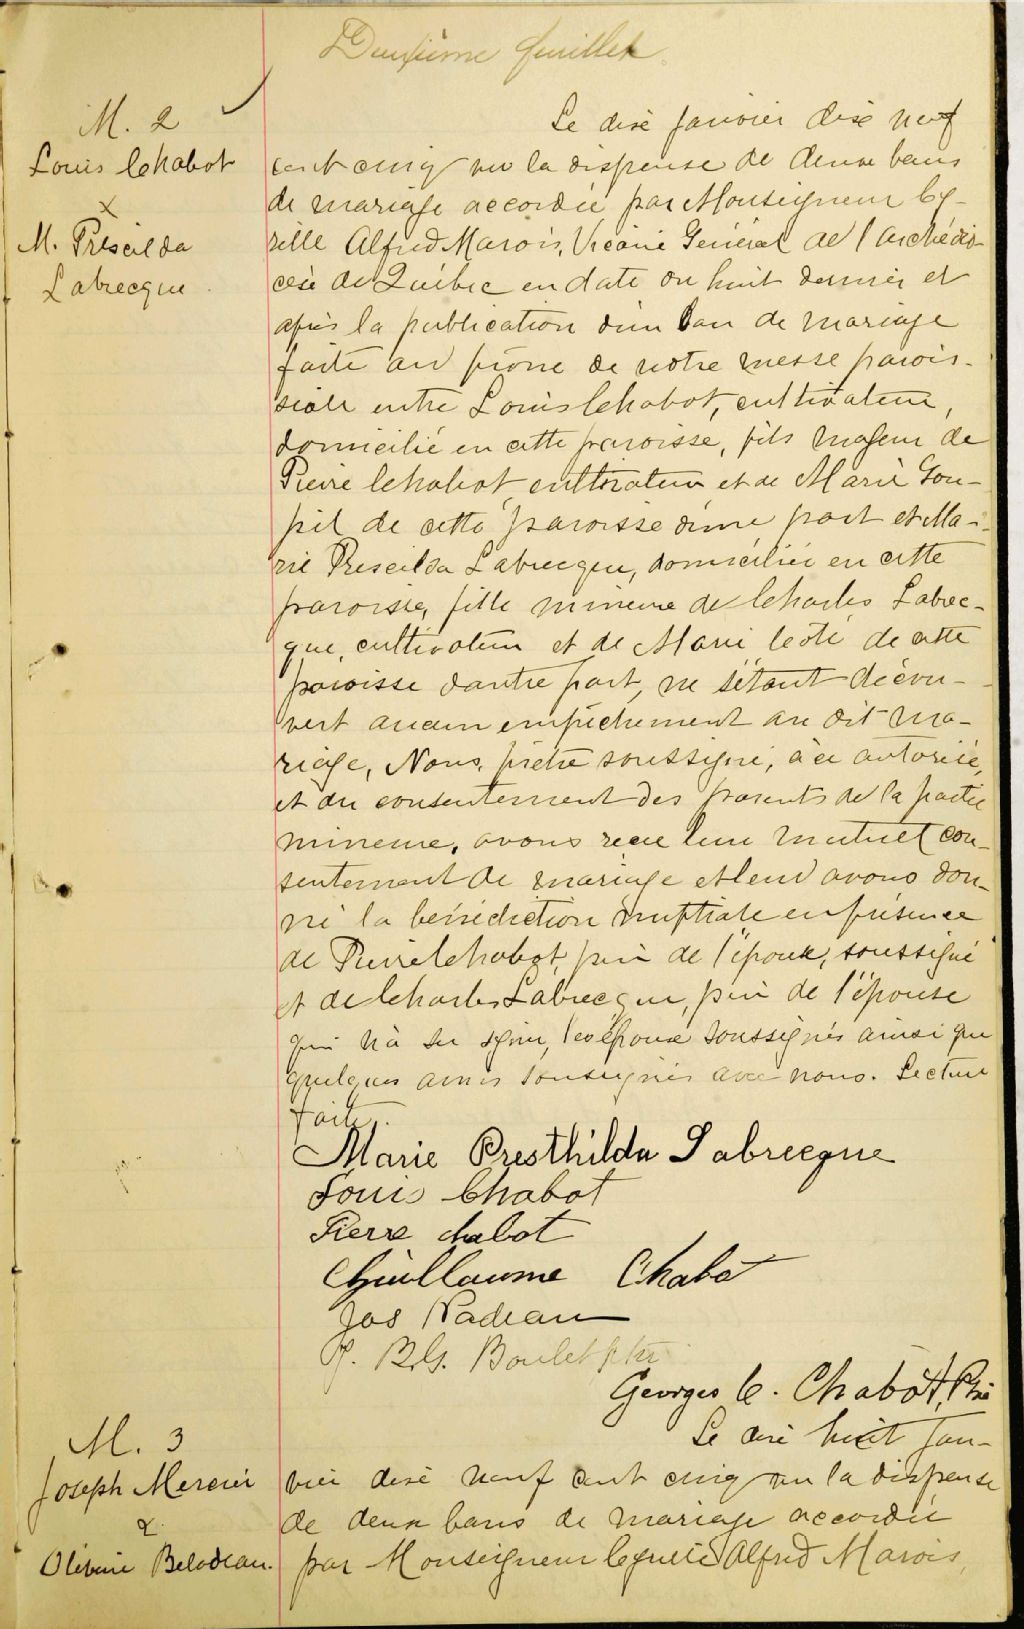 Deuxième feuillet.
M. 2
Louis Chabot
&
M. Prescilda
Labrecque
Le dix janvier dix neuf
cent cinq vu la dispense de deux bans
de mariage accordée par Monseigneur Cy-
rille Alfred Marois, Vicaire Général de l'archidio-
cèse de Québec en date du huit dernier et
après la publication d'un ban de mariage
faite au prône de notre messe parois-
siale entre Louis Chabot, cultivateur,
domicilié en cette paroisse, fils majeur de
Pierre Chabot, cultivateur et de Marie Gou-
pil de cette paroisse d'une part et Ma-
rie Prescilda Labrecque, domiciliée en cette
paroisse, fille mineure de Charles Labrec-
que, cultivateur et de Marie Coté de cette
paroisse d'autre part, ne s'étant décou-
vert aucun empêchement au dit ma-
riage, Nous, prêtre soussigné, à ce autorisé,
et du consentement des parents de la partie
mineure, avons reçu leur mutuel con-
sentement de mariage et leur avons don-
né la bénédiction nuptiale en présence
de Pierre Chabot, père de l'époux, soussigné
et de Charles Labrecque, père de l'épouse
qui n'a su signer, les époux soussignés ainsi que
quelques amis soussignés avec nous. Lecture
faite.
Marie Presthilda Labrecque
Louis Chabot
Pierre chabot
Guillaume Chabot
Jos Nadeau
J. B. G. Boulet ptre
Georges C. Chabot, Ptre
M. 3
Joseph Mercier
&
Olivine Belodeau.
Le dix huit jan-
vier dix neuf cent cinq vu la dispense
de deux bans de mariage accordée
par Monseigneur Cyrille Alfred Marois,